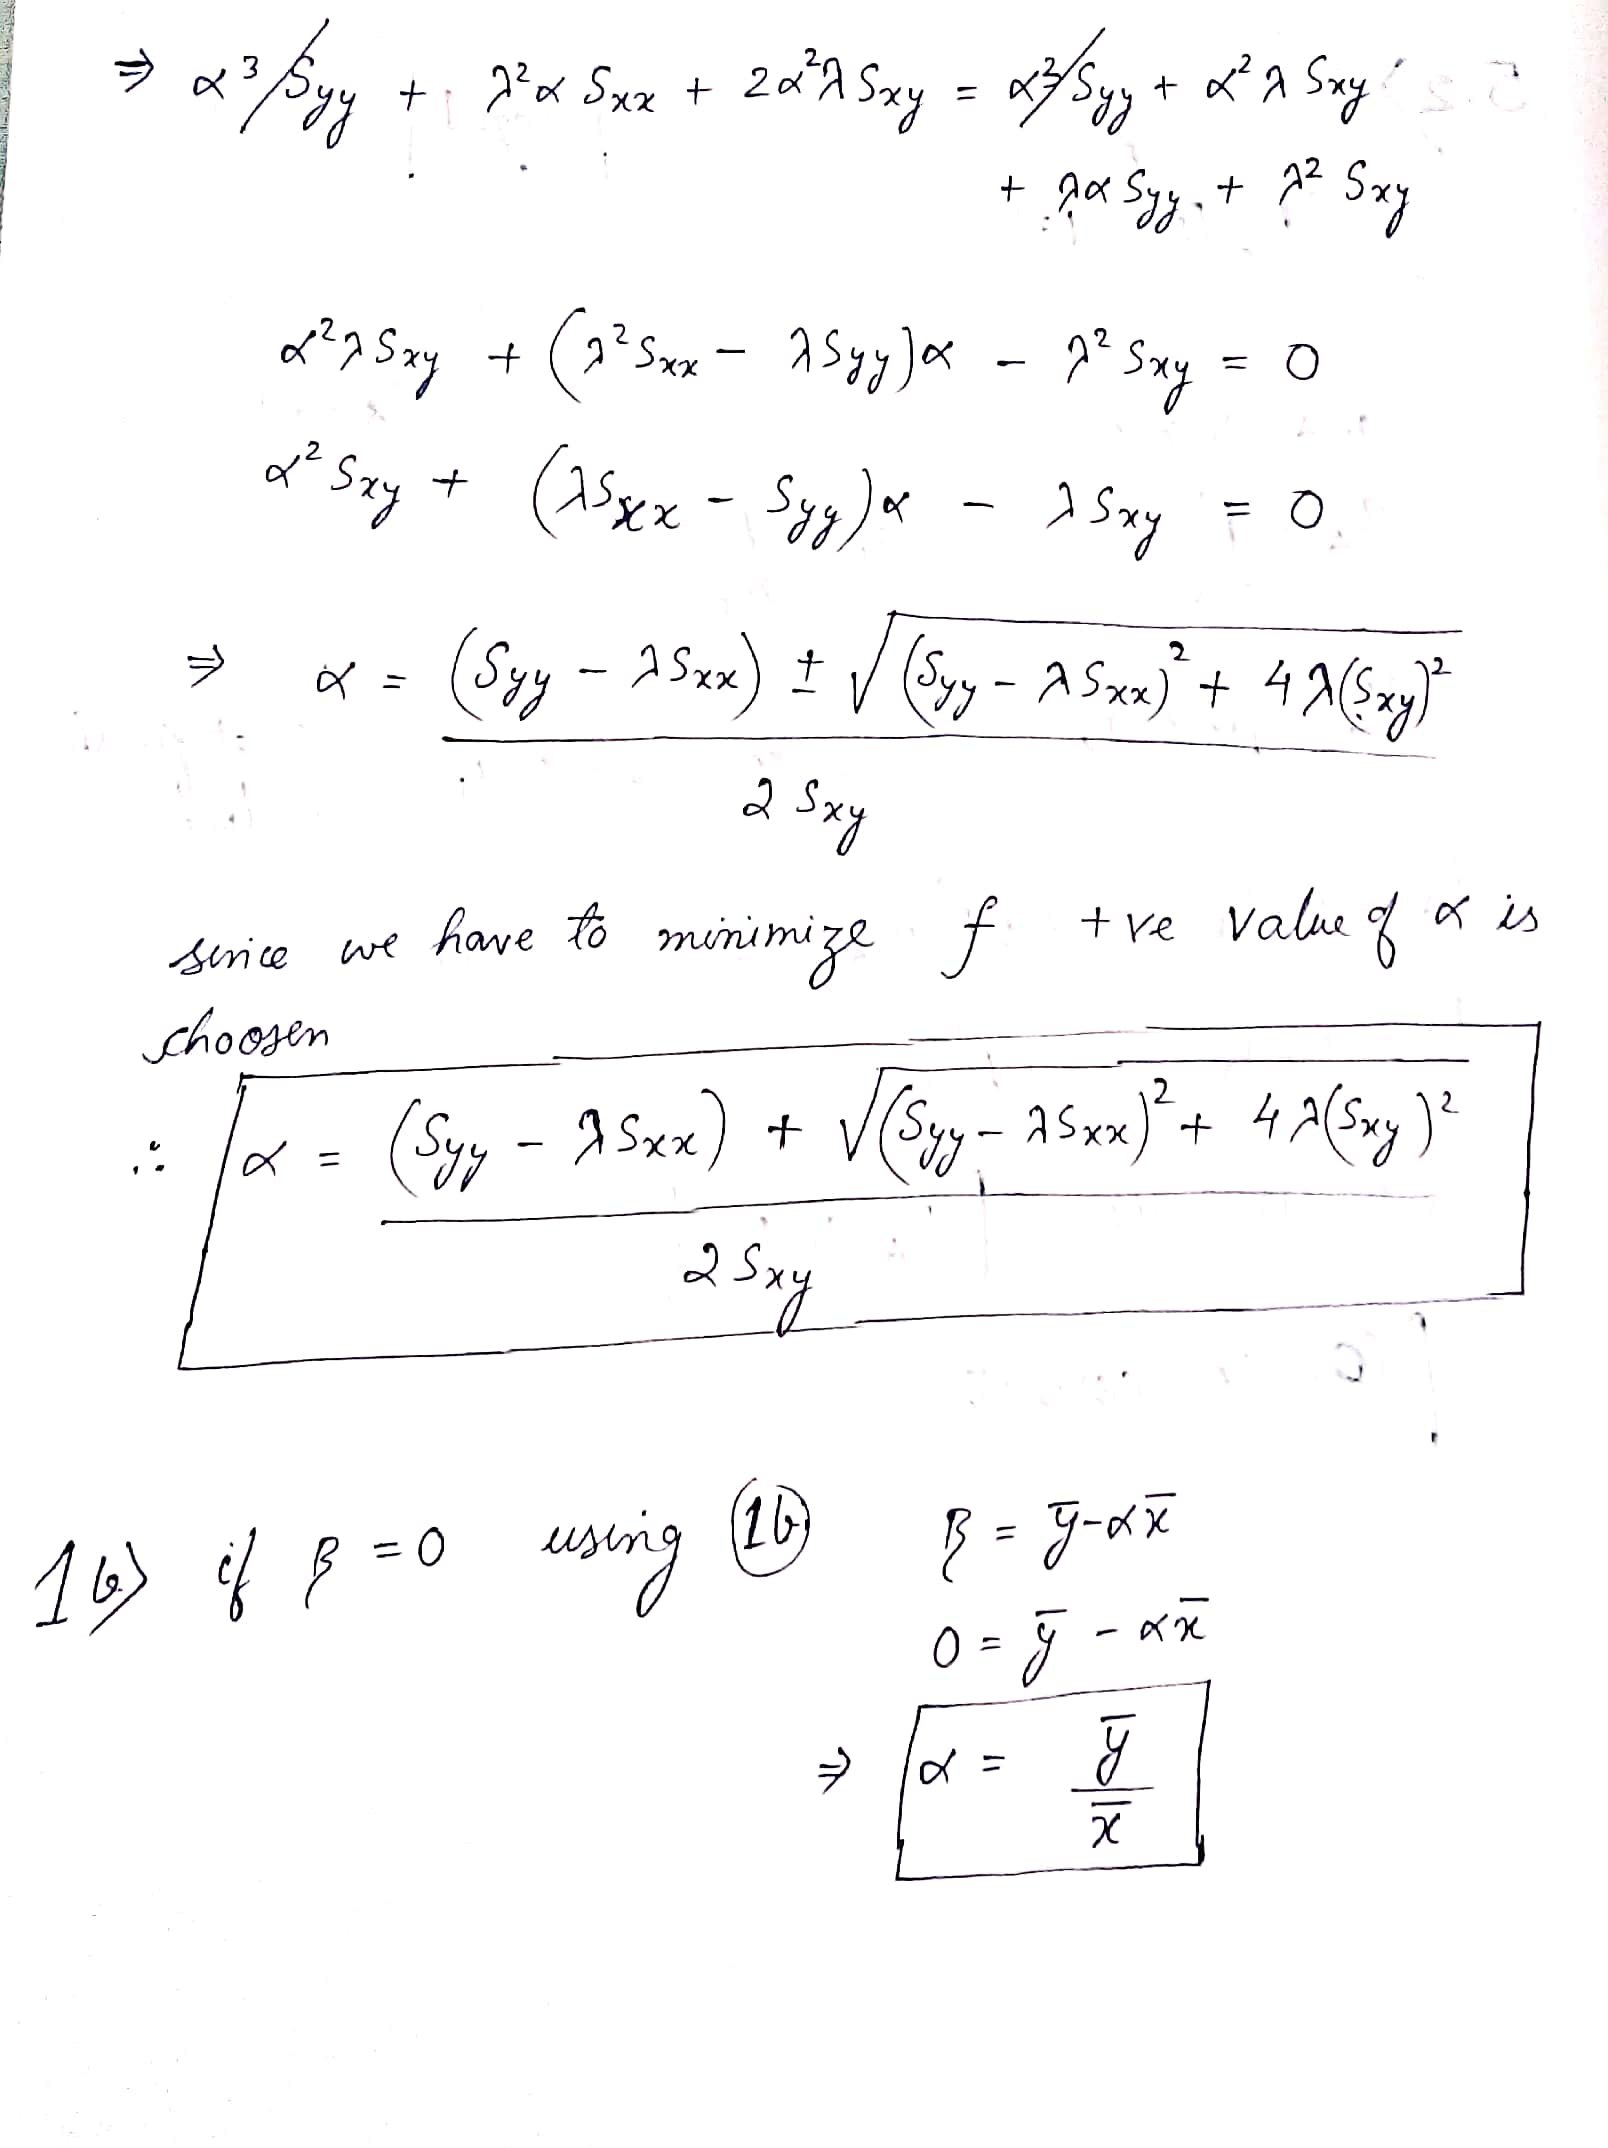 ⇒ α³Syy + λ²α Sxx + 2α²λ Sxy = α³Syy + α²λ Sxy
+ λα Syy + λ² Sxy
α²λ Sxy + (λ²Sxx − λSyy)α − λ² Sxy = 0
α² Sxy + (λSxx − Syy)α − λ Sxy = 0
⇒ α = (Syy − λSxx) ± √(Syy − λSxx)² + 4λ(Sxy)²
2 Sxy
since we have to minimize f +ve value of α is
choosen
∴ α = (Syy − λSxx) + √(Syy − λSxx)² + 4λ(Sxy)²
2 Sxy
1b) if β = 0 using (1b) β = ȳ-αx̄
0 = ȳ − αx̄
⇒ α = ȳ
x̄